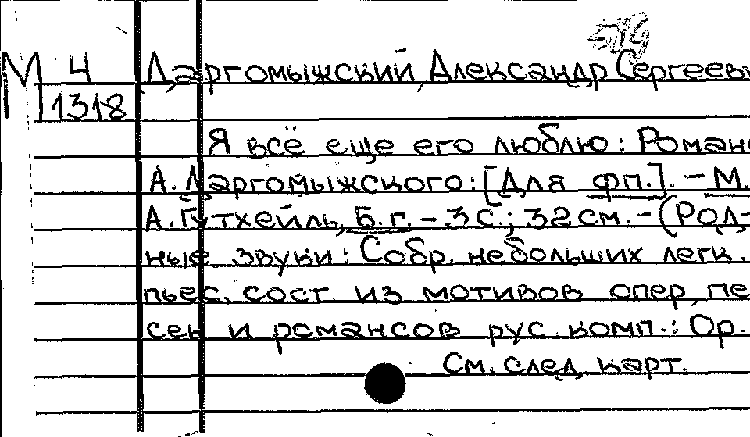 М 4 Даргомыжский, Александр Сергееви
1318
Я всё еще его люблю: Роман
А. Даргомыжского: [Для фп.]. - М.
А. Гутхейль, Б.г. - 3 с.; 32 см. - (Род-
ные звуки: Собр. небольших легк.
пьес, сост. из мотивов опер, пе
сен и романсов рус. комп.: Ор.
См. след. карт.